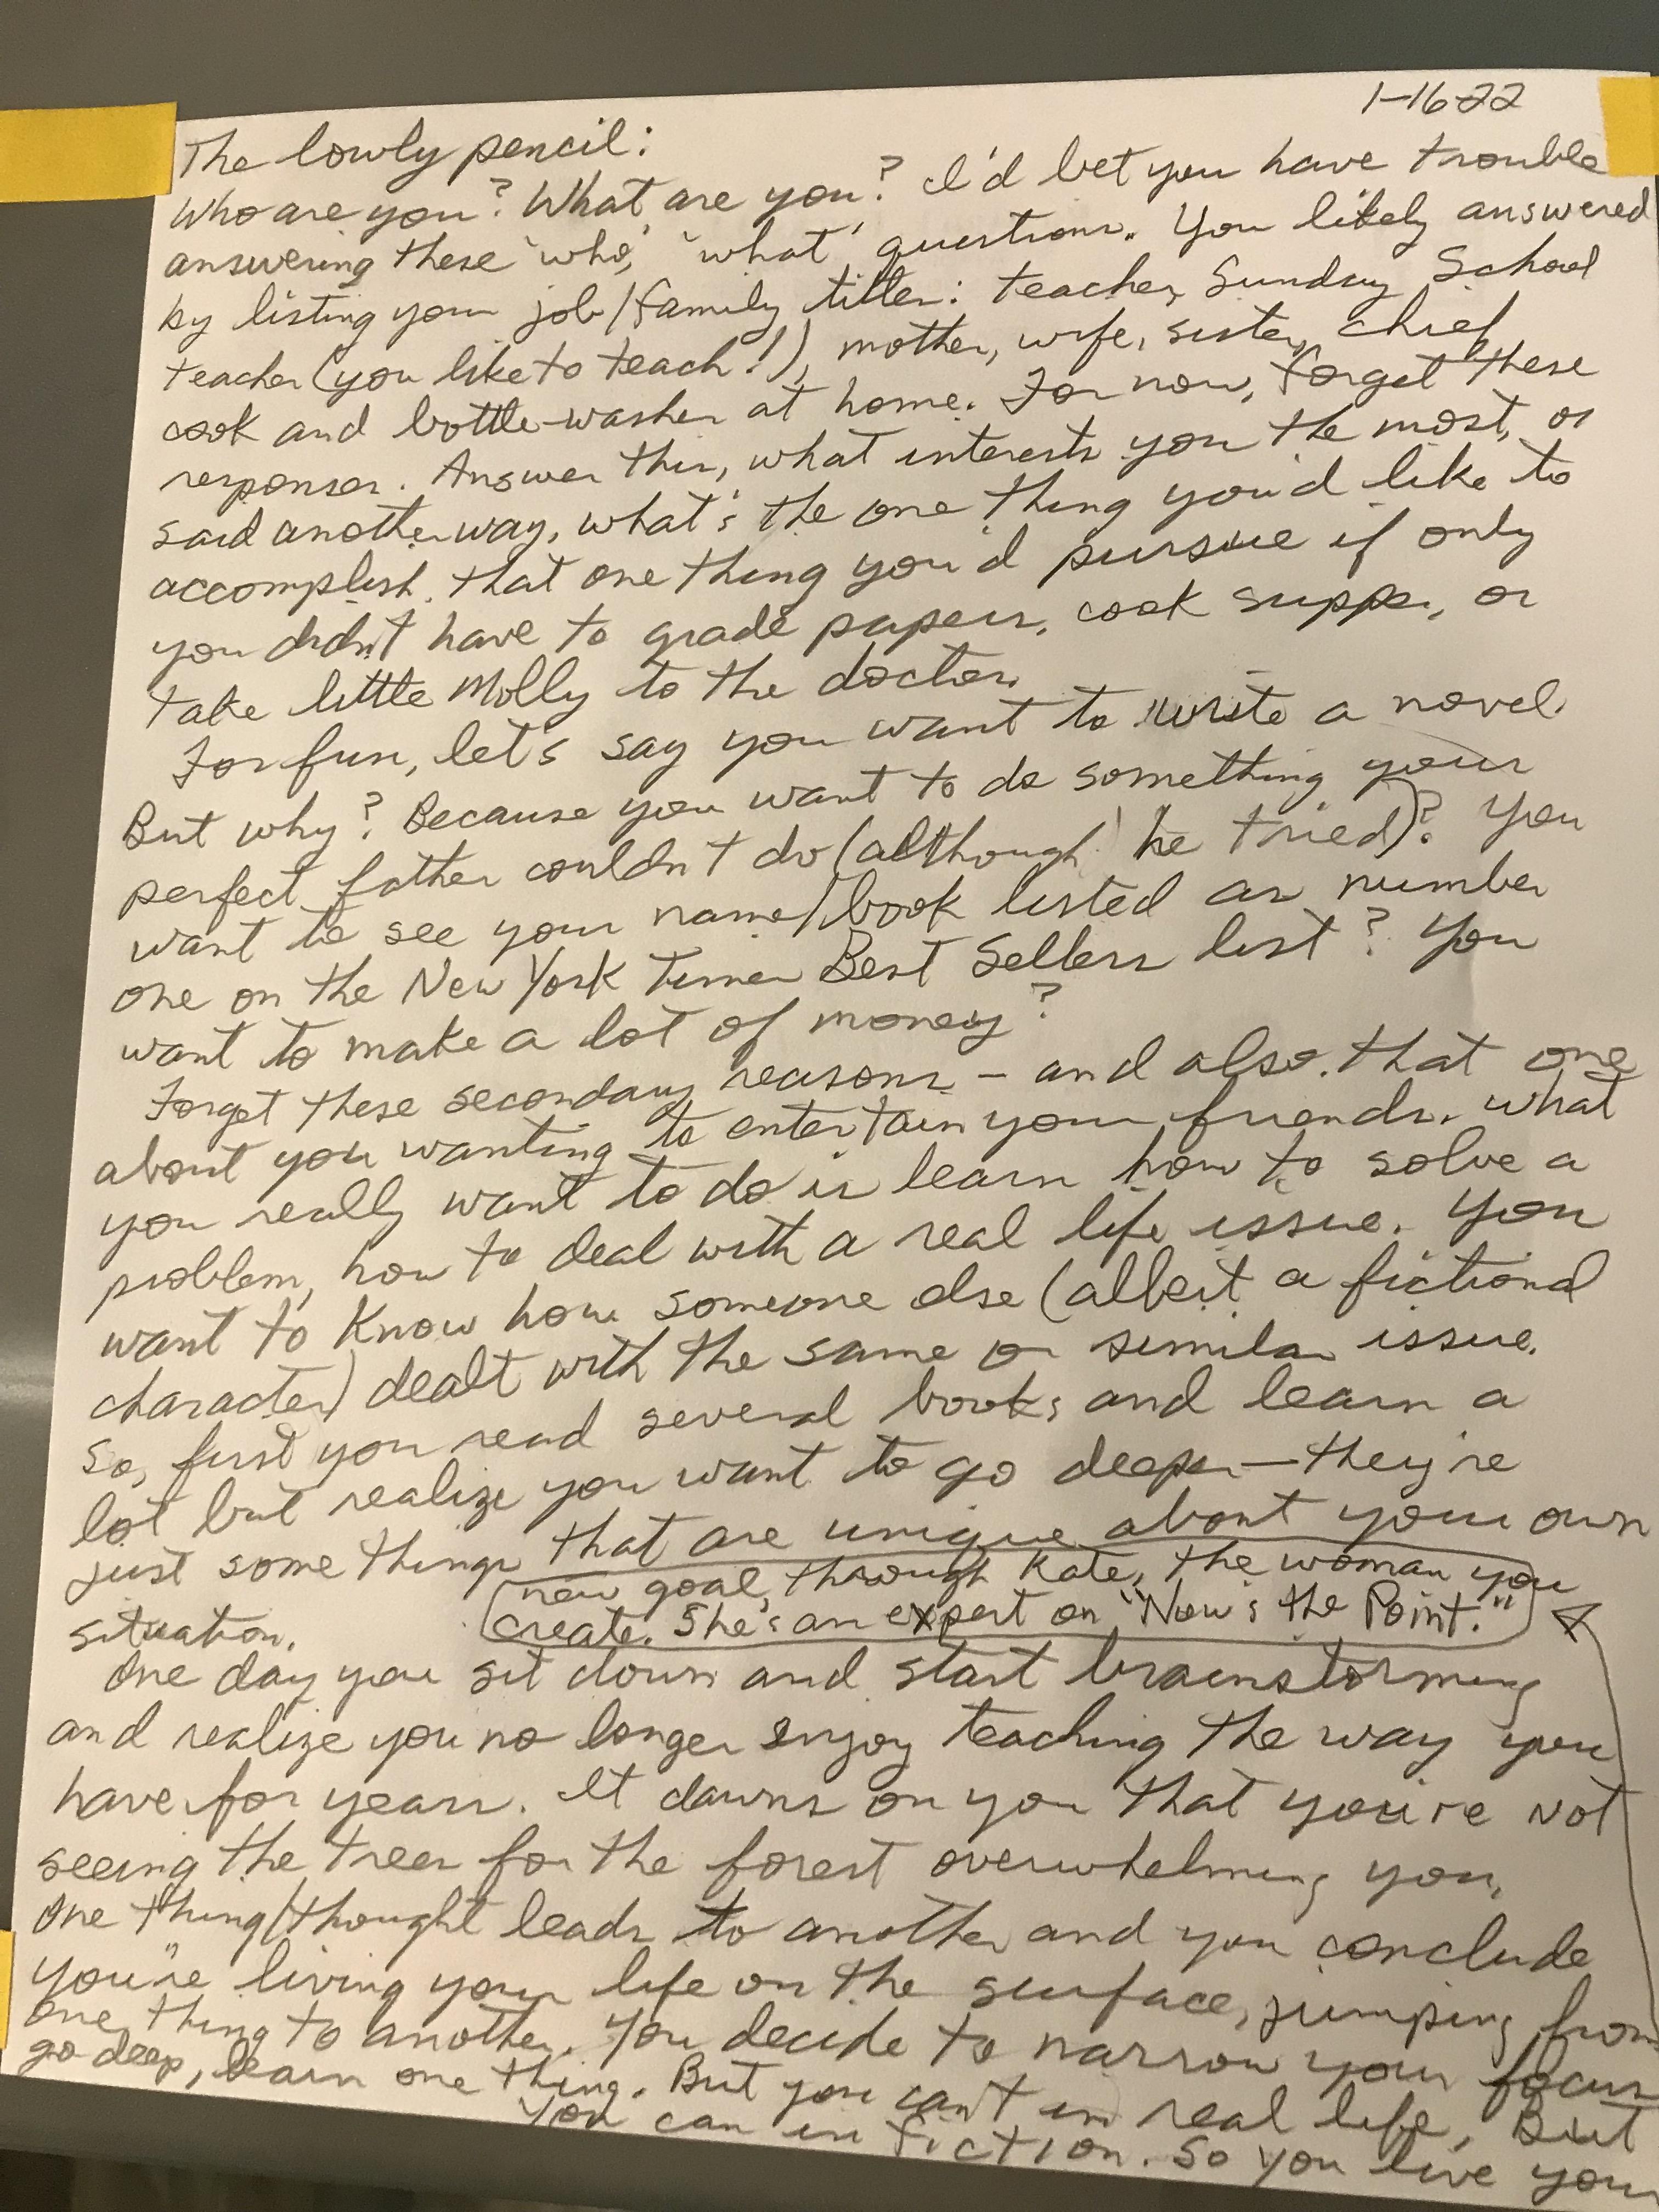 1-16-22
The lowly pencil:
Who are you? What are you? I'd bet you have trouble
answering these 'who,' 'what' questions. You likely answered
by listing your job/family titles: teacher, Sunday School
teacher (you like to teach!), mother, wife, sister, chief
cook and bottle-washer at home. For now, forget these
responses. Answer this, what interests you the most, or
said another way, what's the one thing you'd like to
accomplish, that one thing you'd pursue if only
you didn't have to grade papers, cook supper, or
take little Molly to the doctor.
For fun, let's say you want to write a novel.
But why? Because you want to do something your
perfect father couldn't do (although he tried)? You
want to see your name/book listed as number
one on the New York Times Best Sellers list? You
want to make a lot of money?
Forget these secondary reasons - and also, that one
about you wanting to entertain your friends. What
you really want to do is learn how to solve a
problem, how to deal with a real life issue. You
want to know how someone else (albeit a fictional
character) dealt with the same or similar issue.
So, first you read several books and learn a
lot but realize you want to go deeper—they're
just some things that are unique about your own
situation.
One day you sit down and start brainstorming
and realize you no longer enjoy teaching the way you
have for years. It dawns on you that you're not
seeing the trees for the forest overwhelming you.
One thing/thought leads to another and you conclude
you're living your life on the surface, jumping from
one thing to another. You decide to narrow your focus
go deep, learn one thing. But you can't in real life, But
you can in fiction. So you live your
new goal, through Kate, the woman you
create. She's an expert on "Now's the Point."